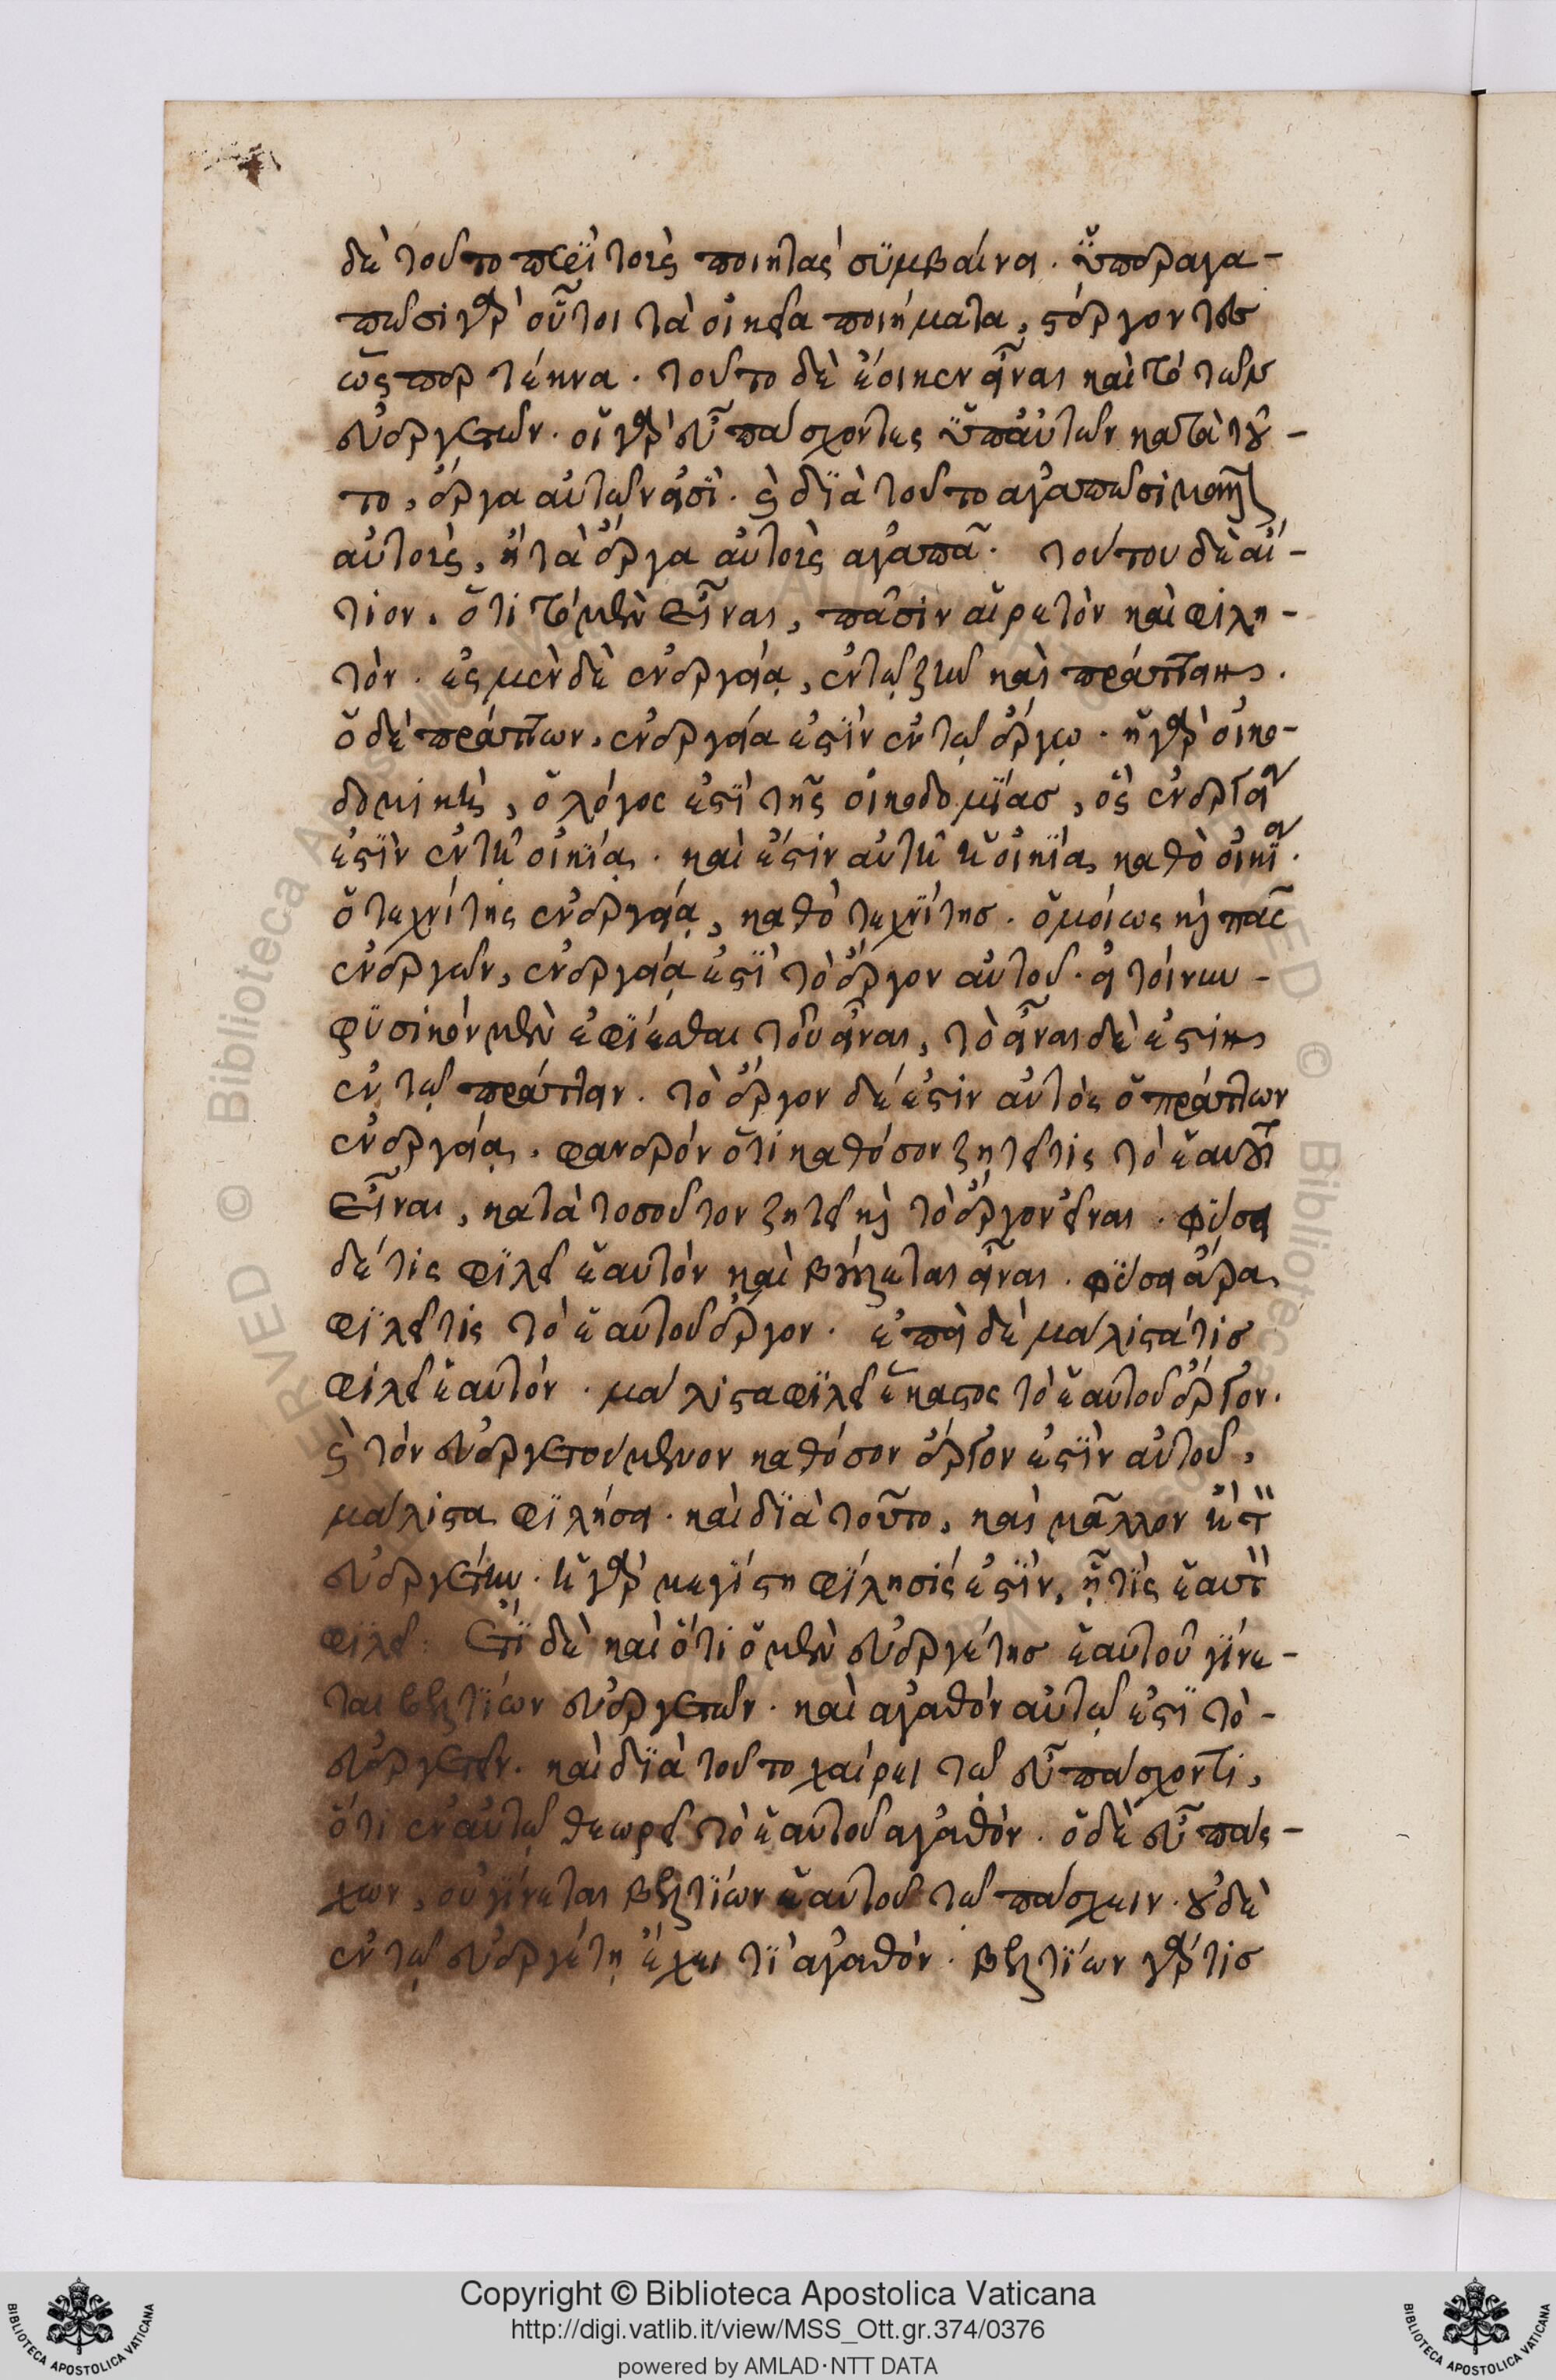 δὲ τοῦτο περὶ τοὺς ποιητὰς συμβαίνει. ὑπεραγα-
πῶσι γὰρ οὗτοι τὰ οἰκεῖα ποιήματα, στέργοντες
ὥσπερ τέκνα. τοῦτο δὲ ἔοικεν εἶναι καὶ τὸ τῶν
εὐεργετῶν. οἱ γὰρ εὖ πάσχοντες ὑπ' αὐτῶν κατὰ τοῦ-
το, ἔργα αὐτῶν εἰσὶ. καὶ διὰ τοῦτο ἀγαπῶσι μᾶλλον
αὐτοὺς, ἢ τὰ ἔργα αὐτοὺς ἀγαπᾶ. τούτου δὲ αἴ-
τιον. ὅτι τὸ μὲν εἶναι, πᾶσιν αἱρετὸν καὶ φιλη-
τόν. ἐσμὲν δὲ ἐνεργείᾳ, ἐν τῷ ζῆν καὶ πράττειν.
ὁ δὲ πράττων, ἐνεργείᾳ ἐστὶν ἐν τῷ ἔργῳ. ἡ γὰρ οἰκο-
δομικὴ, ὁ λόγος ἐστὶ τῆς οἰκοδομίας, ὃς ἐνεργείᾳ
ἐστὶν ἐν τῇ οἰκίᾳ. καὶ ἔστιν αὐτὴ ἡ οἰκία καθὸ οἰκία.
ὁ τεχνίτης ἐνεργείᾳ, καθὸ τεχνίτης. ὁμοίως καὶ πᾶς
ἐνεργῶν, ἐνεργείᾳ ἐστὶ τὸ ἔργον αὐτοῦ. εἰ τοίνυν
φυσικὸν μὲν ἐφίεσθαι τοῦ εἶναι, τὸ εἶναι δὲ ἐστὶν
ἐν τῷ πράττειν. τὸ ἔργον δέ ἐστιν αὐτὸς ὁ πράττων
ἐνεργείᾳ. φανερὸν ὅτι καθόσον ζητεῖ τις τὸ ἑαυτοῦ
εἶναι, κατὰ τοσοῦτον ζητεῖ καὶ τὸ ἔργον εἶναι. φύσει
δέ τις φιλεῖ ἑαυτὸν καὶ βούλεται εἶναι. φύσει ἄρα
φιλεῖ τις τὸ ἑαυτοῦ ἔργον. ἐπεὶ δὲ μάλιστά τις
φιλεῖ ἑαυτόν. μάλιστα φιλεῖ ἕκαστος τὸ ἑαυτοῦ ἔργον.
καὶ τὸν εὐεργετούμενον καθόσον ἔργον ἐστὶν αὐτοῦ,
μάλιστα φιλήσει. καὶ διὰ τοῦτο, καὶ μᾶλλον ἢ τὸν
εὐεργέτην. ἡ γὰρ μεγίστη φίλησίς ἐστιν, ἥ τις ἑαυτὸν
φιλεῖ. ἔτι δὲ καὶ ὅτι ὁ μὲν εὐεργέτης ἑαυτοῦ γίνε-
ται βελτίων εὐεργετῶν. καὶ ἀγαθὸν αὐτῷ ἐστὶ τὸ
εὐεργετεῖν. καὶ διὰ τοῦτο χαίρει τῷ εὖ πάσχοντι,
ὅτι ἐν αὐτῷ θεωρεῖ τὸ ἑαυτοῦ ἀγαθόν. ὁ δὲ εὖ πάσ-
χων, οὐ γίνεται βελτίων ἑαυτοῦ τῷ πάσχειν. οὐδὲ
ἐν τῷ εὐεργέτῃ ἔχει τὶ ἀγαθόν. βελτίων γάρ τις
Copyright © Biblioteca Apostolica Vaticana
http://digi.vatlib.it/view/MSS_Ott.gr.374/0376
powered by AMLAD·NTT DATA